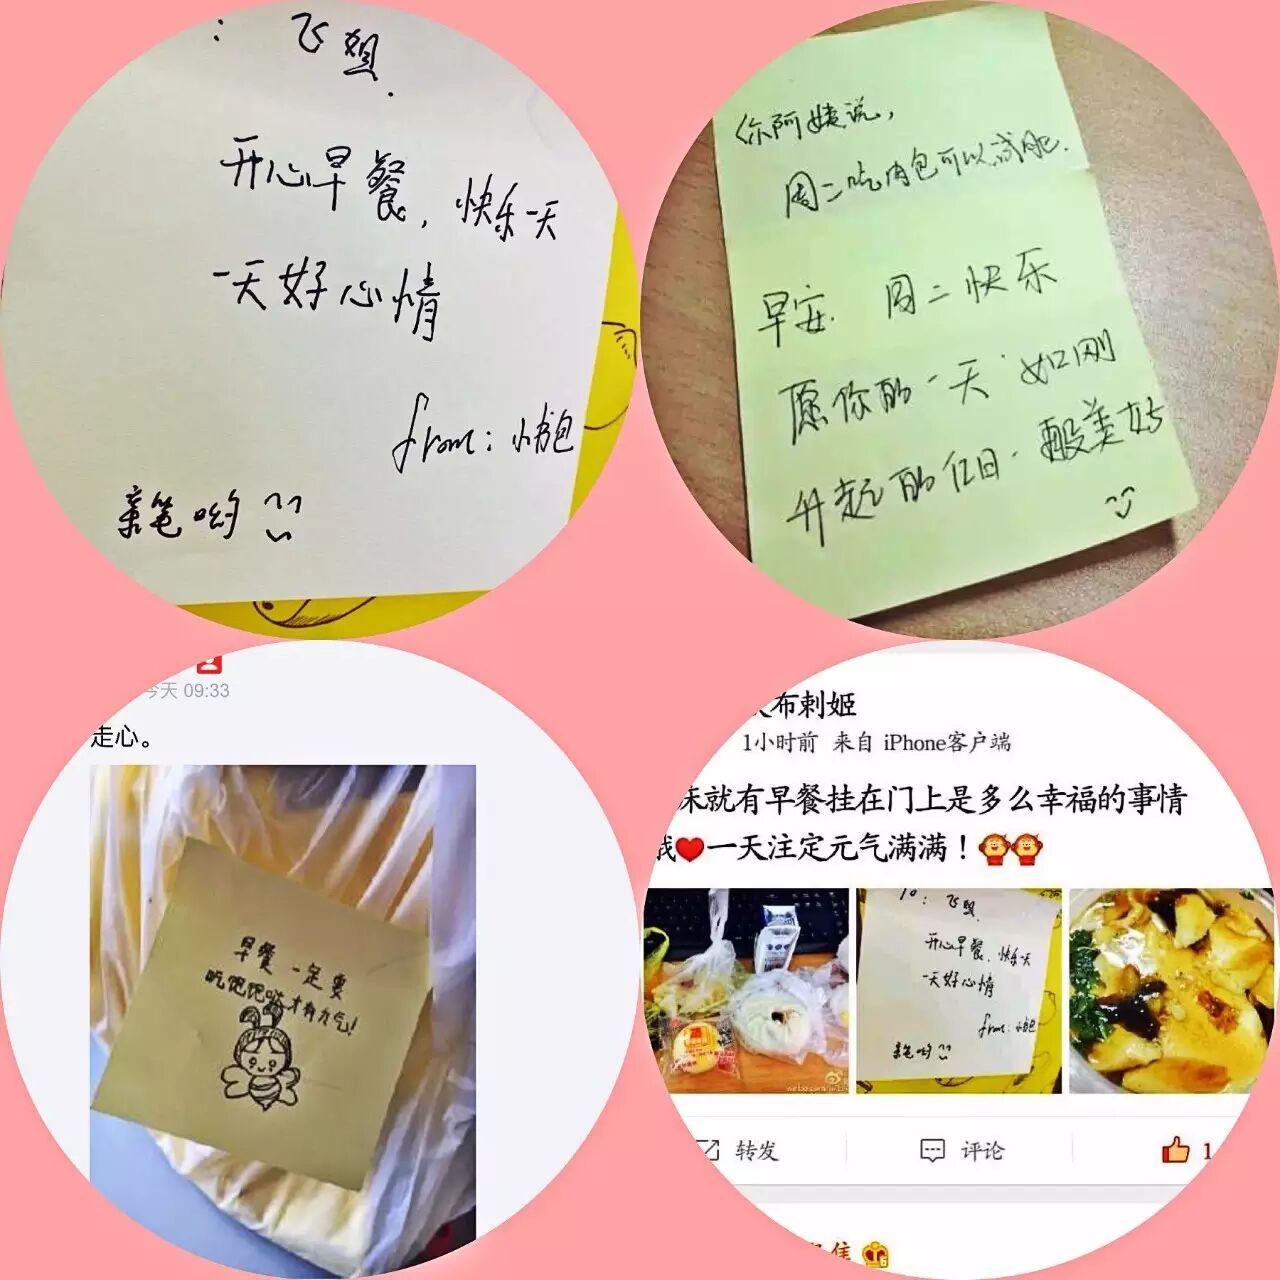 : 飞姐.
开心早餐, 快乐一天
一天好心情
from: 小包
亲笔哟
你阿姨说,
周二吃肉包可以减肥.
早安. 周二快乐
愿你的一天 如刚
升起的红日一般美好
今天 09:33
走心。
早餐一定要
吃饱饱哒才有力气!
布刺姬
1小时前 来自 iPhone客户端
床就有早餐挂在门上是多么幸福的事情
我❤一天注定元气满满！
To: 飞姐.
开心早餐, 快乐一天
一天好心情
from: 小包
亲笔哟
转发 评论 1